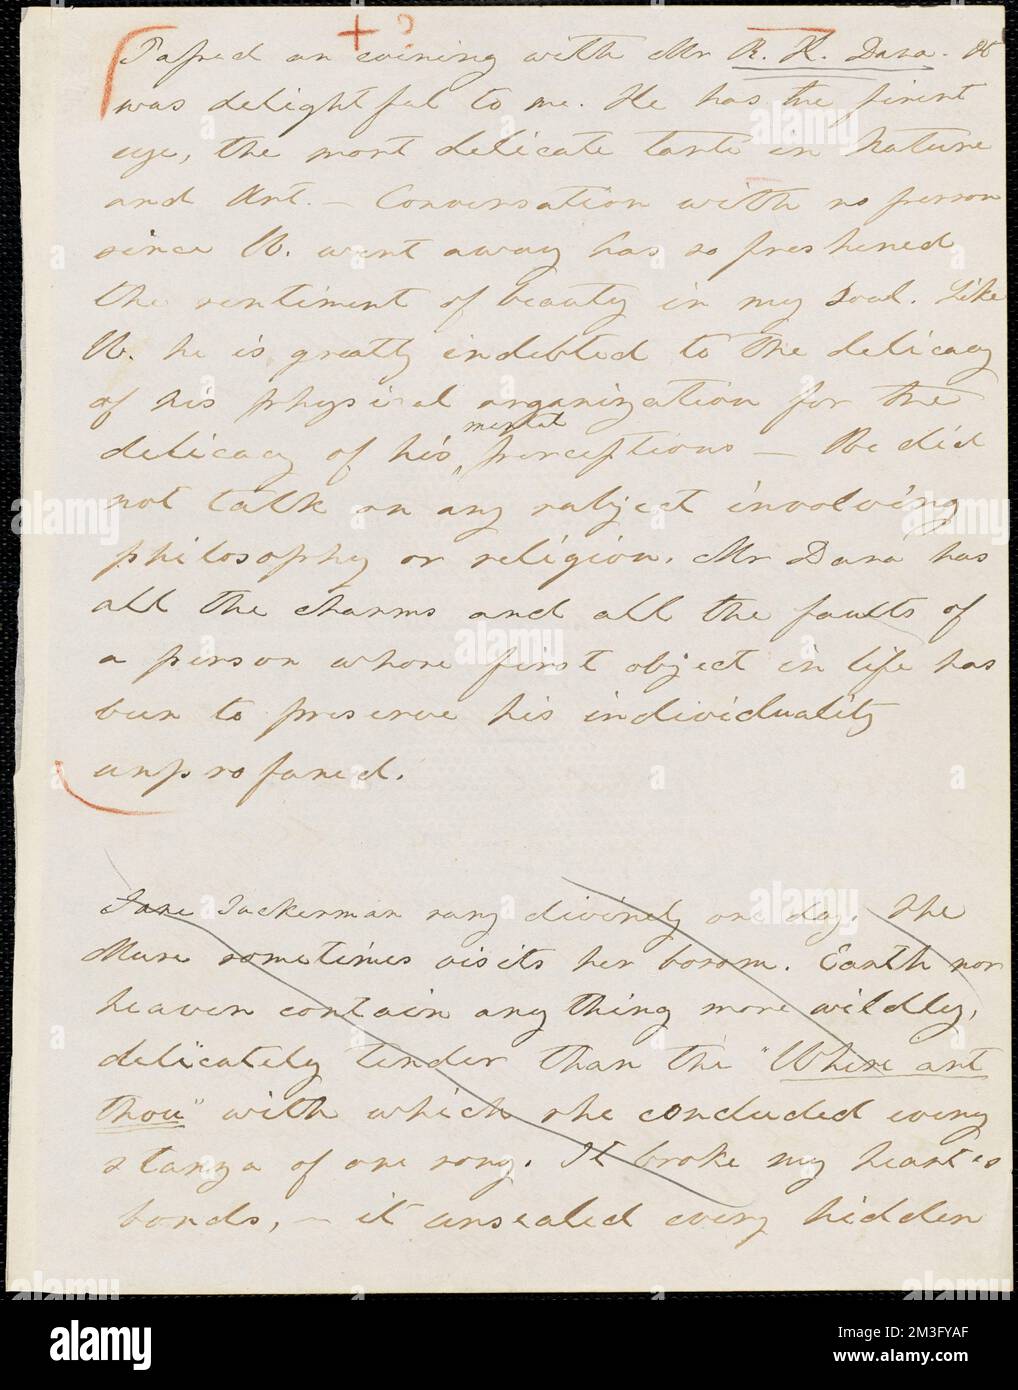 + ?
Passed an evening with Mr R. H. Dana. It
was delightful to me. He has the finest
eye, the most delicate taste in Nature
and Art. — Conversation with no person
since W. went away has so freshened
the sentiment of beauty in my soul. Like
W. he is greatly indebted to the delicacy
of his physical organization for the
mental
delicacy of his perceptions — We did
not talk on any subject involving
philosophy or religion. Mr Dana has
all the charms and all the faults of
a person whose first object in life has
been to preserve his individuality
unprofaned.
Jane Tuckerman sang divinely one day. The
Muse sometimes visits her bosom. Earth nor
heaven contain any thing more wildly,
delicately tender than the "Where art
thou" with which she concluded every
stanza of one song. It broke my heart's
bonds, — it unsealed every hidden
alamy
Image ID: 2M3FYAF
www.alamy.com